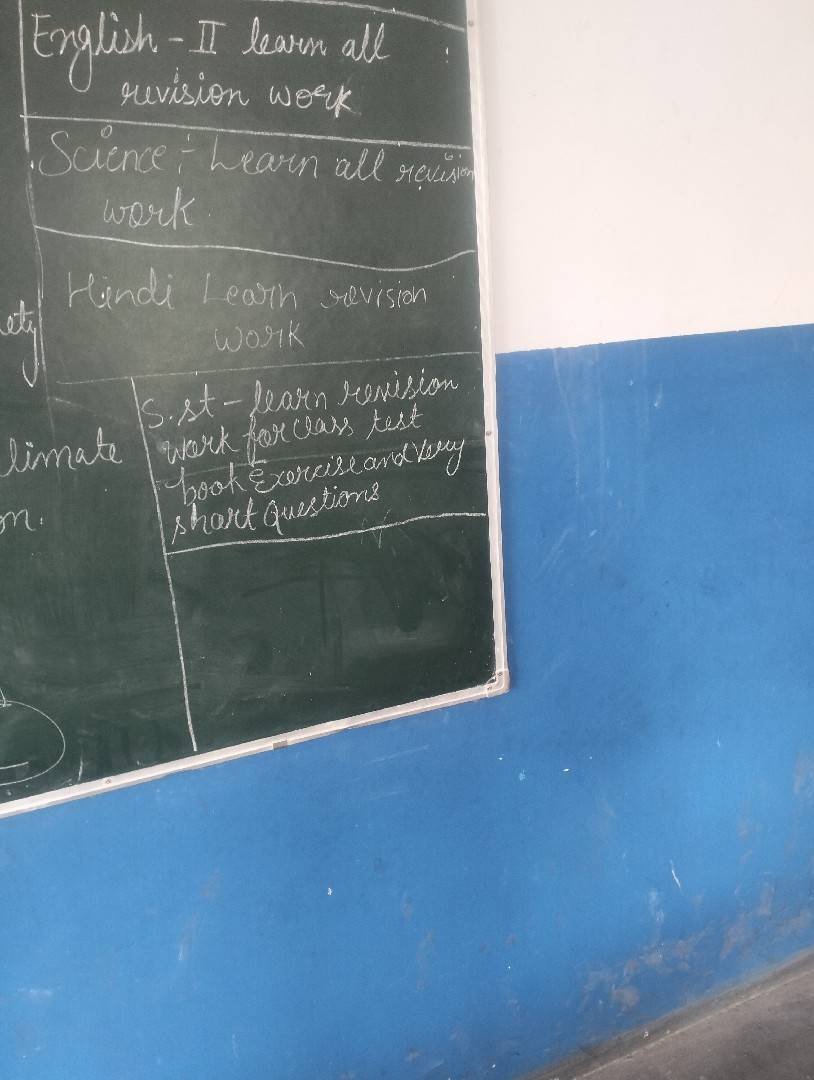 English - II learn all
revision work
Science :- Learn all revision
work
Hindi Learn revision
work
S.st - learn revision
work for class test
book Exercise and Very
short Questions
limate
on.